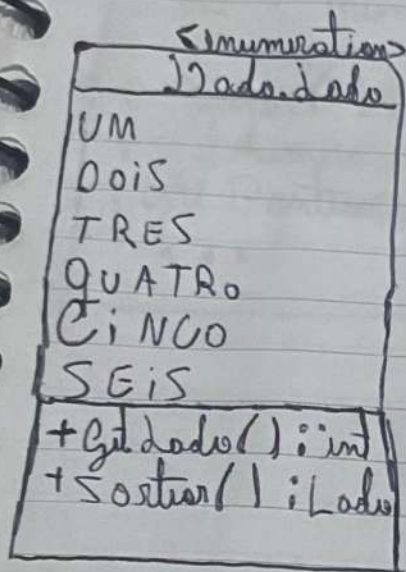 <enumeration>
Dado.Lado
UM
DOiS
TRES
QUATRO
CiNCO
SEiS
+Get Lado() : int
+Sortear() : Lado